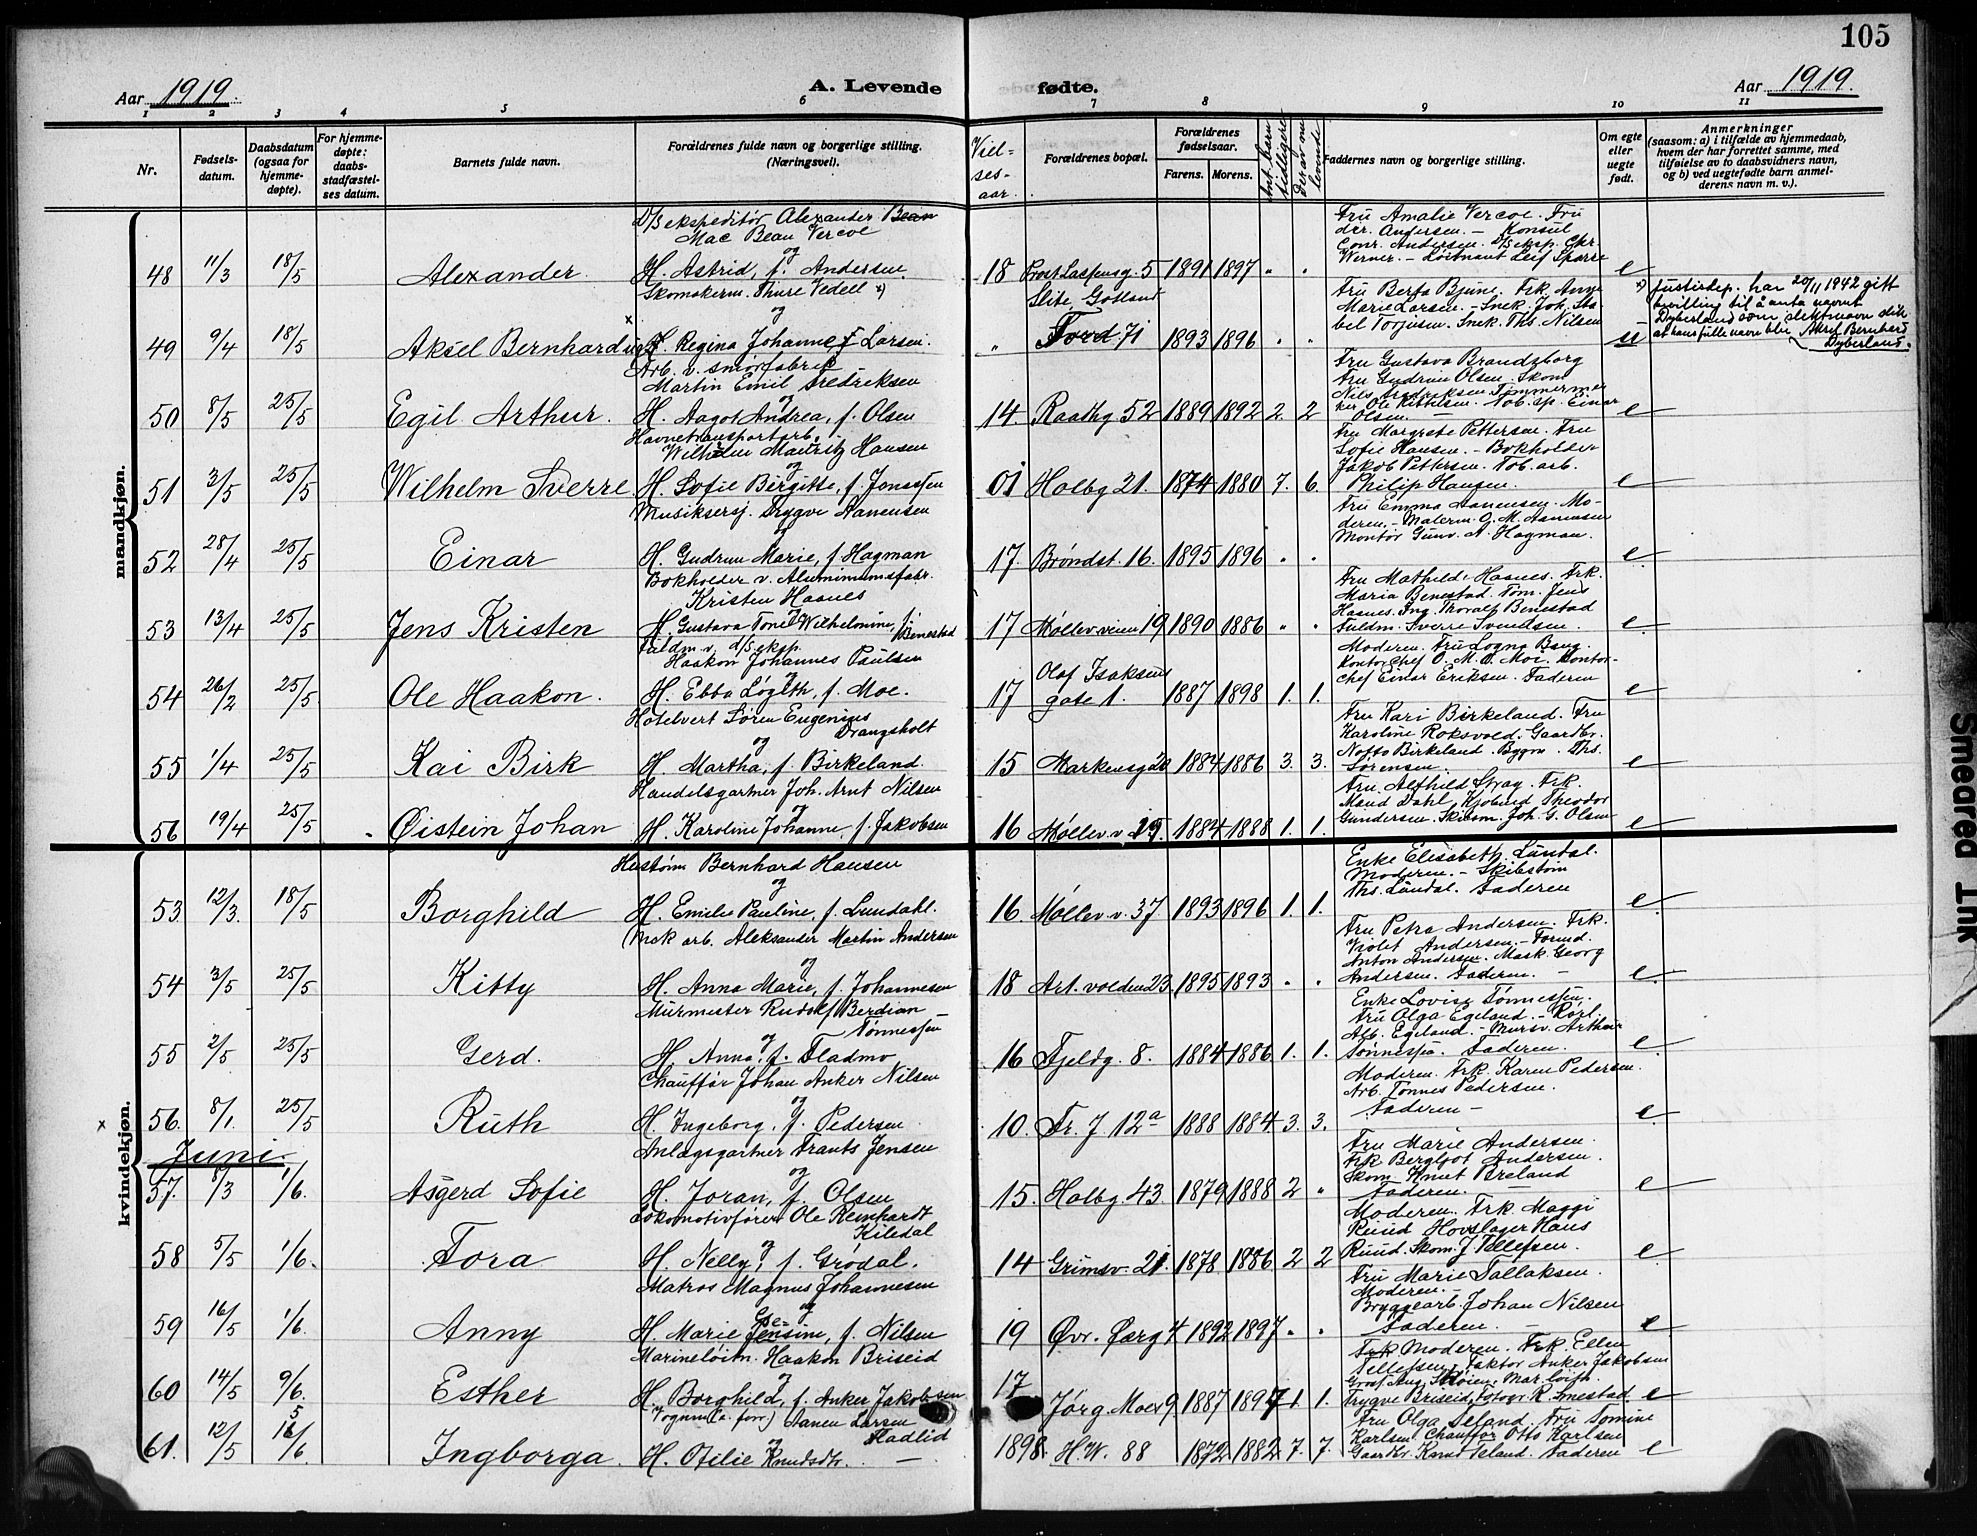 105
Aar 1919. A. Levende fødte. Aar 1919.
1 2 3 4 5 6 7 8 9 10 11
Nr. Fødsels-datum. Daabsdatum (ogsaa for hjemme-døpte). For hjemme-døpte: daabs stadfæstel-ses datum. Barnets fulde navn. Forældrenes fulde navn og borgerlige stilling. (Næringsvei). Viel-ses-aar. Forældrenes bopæl. Forældrenes fødselsaar. Farens. Morens. Ant. barn tidligere Derav nu levende Faddernes navn og borgerlige stilling. Om egte eller uegte født. Anmerkninger (saasom: a) i tilfælde av hjemmedaab, hvem der har forrettet samme, med tilføielse av to daabsvidners navn, og b) ved uegtefødte barn anmel-derens navn m. v.).
mandkjøn.
D/S ekspeditør Alexander Bean
Mac Bean Vercoe
og
48 11/3 18/5 Alexander H. Astrid, f. Andersen. 18 5 1891 1897 " "
Fru Amalie Vercoe. Fru
Andersen. - Konsul
Conr. Andersen. D/S eksp. Chr.
Werner. - Løitnant Leif Sparre e
Skomakerm. Thure Vedell x)
og
Slite Gotland
49 9/4 18/5 Aksel Bernhard x H. Regina Johanne Larsen. " 71 1893 1896 " "
Fru Berta Bjune. Frk.
Marie Larsen. - Snek. Joh.
Torjusen. Snek. Ths. Nilsen u
x) Justisdep. har 20/11 1942 gitt
bevilling til å anta navnet
Dyberland som slektsnavn slik
at hans fulle navn blir Aksel Bernhard
Dyberland.
Arb. v. smørfabrik
Martin Emil Fredriksen
og
50 8/5 25/5 Egil Arthur. H. Aagot Andrea, f. Olsen 14. Raadhg 52 1889 1892 2 2
Fru Gustava Brandsborg
Fru Gudrun Olsen. Skom.
Nils Fredriksen Tømmerman
Ole Kittelsen. - Tob. sp. Einar
Olsen. e
Havnetransportarb.
Wilhelm Mauritz Hansen
og
51 3/5 25/5 Wilhelm Sverre H. Sofie Birgitte, f. Jonassen 01 Holbg 21. 1874 1880 7. 6.
Fru Margrete Pettersen. Fru
Sofie Hansen. - Bokholder
Jakob Pettersen. Tob. arb.
Philip Hansen. e
Musiksersj. Trygve Aanensen
og
52 28/4 25/5 Einar H. Gudrun Marie, f. Hagman 17. Brøndst. 16. 1895 1896 " "
Fru Emma Aanensen. Mo-
deren. - Malerm. O. M. Aanensen
Montør Gunv. A. Hagman. e
Bokholder v. Aluminiumsfabr.
Kristen Haanes
og
53 13/4 25/5 Jens Kristen H. Gustava Tone Wilhelmine, f. Benestad 17 Møllevveien 19 1890 1886 " "
Fru Mathilde Haanes. Frk.
Maria Benestad. Tøm. Jens
Haanes. Ing. Thoralf Benestad
Fuldm. Sverre Svendsen. e
Fuldm. v. d/s eksp.
Haakon Johannes Paulsen
og
54 26/2 25/5 Ole Haakon. H. Ebba f. Moe. 17 Olaf Isaksens gate 1. 1887 1898 1. 1.
Moderen. Fru Logna Baug.
Kontorchef O. M. Moe. Kontor-
chef Einar Eriksen. Faderen e
Hotelvert Søren Eugenius
Drangsholt
og
55 1/4 25/5 Kai Birk H. Martha, f. Birkeland. 15 Markensg 20 1884 1886 3. 3.
Fru Kari Birkeland. Fru
Karoline Roksvold. Gaardbr.
Notto Birkeland. Bygm. Ths.
Sørensen. e
Handelsgartner Joh. Arnt Nilsen
og
56 19/4 25/5 Øistein Johan H. Karoline Johanne, f. Jakobsen 16 Møllev. v. 1884 1888 1. 1.
Fru Alfhild Stray. Frk.
Maud Dahl. Kjøbmd Theodor
Gundersen. Skibsm. Joh. G. Olsen e
kvindekjøn.
Hustøm Bernhard Hansen
og
53 12/3. 18/5 Borghild H. Emilie Pauline, f. Lundahl. 16. Møllev. v. 37 1893 1896 1. 1.
Enke Elisabeth Lundal.
Moderen. - Skibstøm
Ths. Lundal. Faderen e
Mek arb. Aleksander Martin Andersen
og
54 3/5 25/5 Kitty H. Anna Marie, f. Johannesen 18 Art. volden 23. 1895 1893 " "
Fru Petra Andersen. Frk.
Violet Andersen. - Formd.
Anton Andersen. Mask. Georg
Andersen. Faderen. - e
Murmester Rudolf Berdian
Tønnessen
og
55 2/5 25/5 Gerd. H. Anna, f. Fladmo 16 Fjeldg. 8. 1884 1886 1. 1.
Enke Lovise Tønnessen.
Fru Olga Egeland. - Rørl.
Alb. Egeland. - Mursv. Arthur
Tønnessen. Faderen. e
Chauffør Johan Anker Nilsen
og
x 56. 8/1. 25/5 Ruth H. Ingeborg, f. Pedersen. 10. Tr. J 12a 1888 1884 3. 3.
Moderen. Frk. Karen Pedersen.
Arb. Tønnes Pedersen.
Faderen - e
Juni.
Anlægsgartner Frants Jensen
og
57. 8/3 1/6. Åsgerd Sofie H. Joran, f. Olsen 15. Holbg. 43. 1879 1888 2 "
Fru Marie Andersen.
Frk Bergljot Andersen.
Skom Knut Breland
Faderen. - e
Lokomotivfører Ole Reinhardt
Kiledal
og
58 5/5 1/6. Tora H. Nelly, f. Grødal. 14 Grimsv. 21. 1878 1886 2 2
Moderen. Frk. Maggi
Ruud Hovslager Hans
Ruud. Skom. J. Tellefsen. e
Matros Magnus Johannesen
og
59 16/5 1/6. Anny H. Marie Jensine, f. Nilsen 19 Øvr. 4 1892 1897 " "
Fru Marie Tallaksen.
Moderen. -
Bryggearb. Johan Nilsen
Faderen. - e
Marineløitn. Haakon Briseid
og
60 14/5 9/6. Esther H. Borghild, f. Anker Jakobsen 17 Jørg. Moes 9 1887 1897 1. 1.
Frk Moderen. Frk. Ellen
Tellefsen, Faktor Anker Jakobsen
Mar. løitn.
Trygve Briseid, Fotogr. R. Smestad. e
Vognm (a. forr.) Aanen Larsen
Fladlid
og
61. 12/5 15/6 Ingborga. H. Otilie Knudsdtr. - 1898. H. W. 88 1872 1882 7. 7.
Fru Olga Deland. Fru Tomine
Karlsen. Chauffør Otto Karlsen
Gaardbr. Knud Teland. Faderen e
Smeared Ink